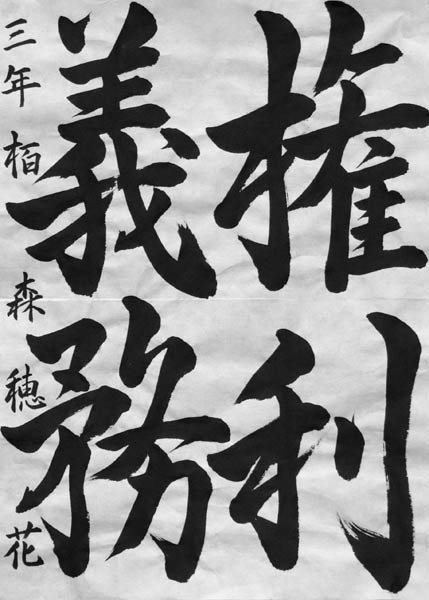 権利
義務
三年 栢森穂花